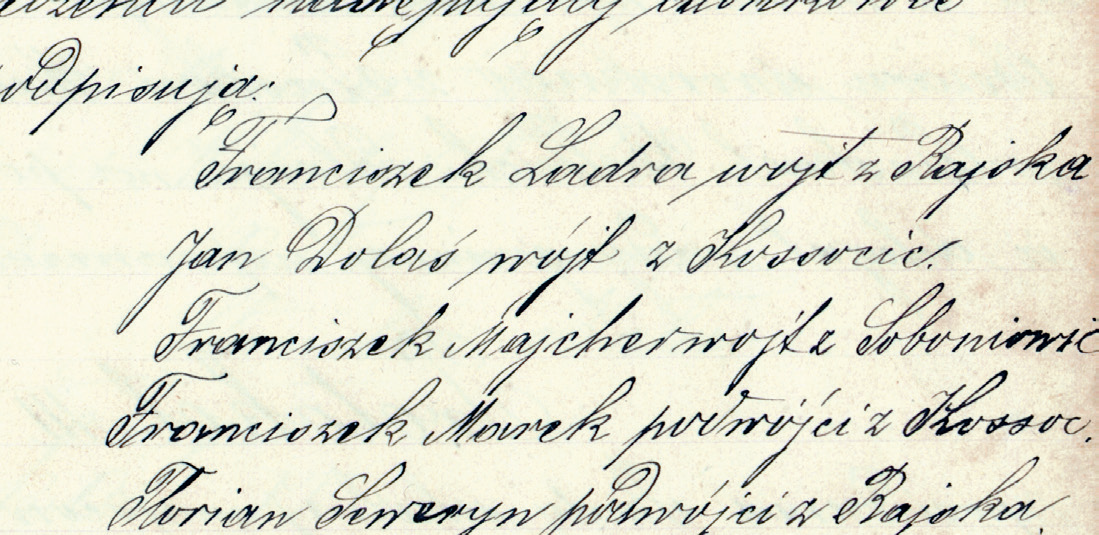 podpisują:
Franciszek Ladra wójt z Rajska
Jan Dolaś wójt z Kossocic.
Franciszek Majcher wójt z Soboniowic
Franciszek Marek podwójci z Kossoc.
Florian Seweryn podwójci z Rajska.